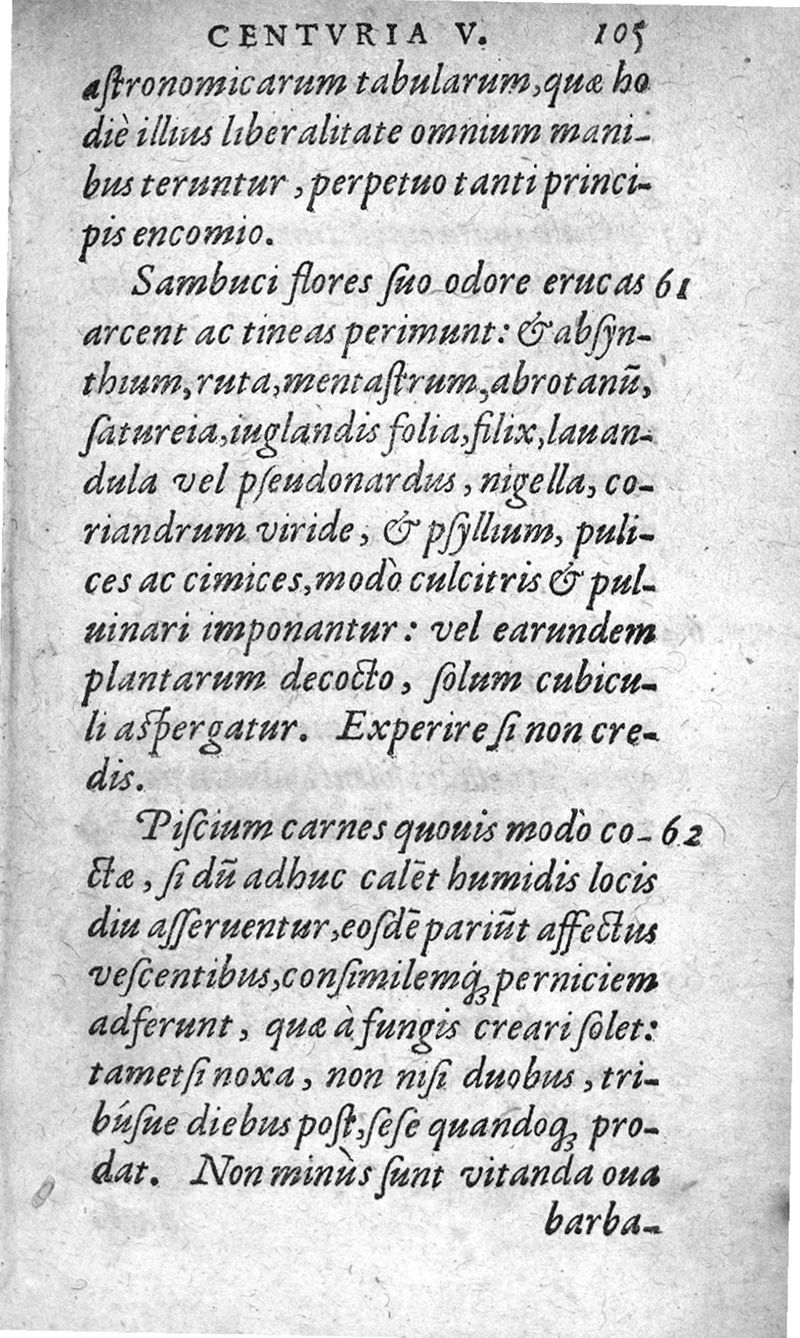 CENTVRIA V. 105
aſtronomicarum tabularum, quæ ho
diè illius liberalitate omnium mani-
bus teruntur, perpetuo tanti princi-
pis encomio.
Sambuci flores ſuo odore erucas 61
arcent ac tineas perimunt: & abſyn-
thium, ruta, mentaſtrum, abrotanũ,
ſatureia, iuglandis folia, filix, lauan-
dula vel pſeudonardus, nigella, co-
riandrum viride, & pſyllium, puli-
ces ac cimices, modò culcitris & pul-
uinari imponantur: vel earundem
plantarum decocto, ſolum cubicu-
li aſpergatur. Experire ſi non cre-
dis.
Piſcium carnes quouis modò co- 62
ctæ, ſi dũ adhuc calẽt humidis locis
diu aſſeruentur, eoſdẽ pariũt affectus
veſcentibus, conſimilemq́ꝫ perniciem
adferunt, quæ à fungis creari ſolet:
tametſi noxa, non niſi duobus, tri-
búſue diebus poſt, ſeſe quandoqꝫ pro-
dat. Non minùs ſunt vitanda oua
barba-